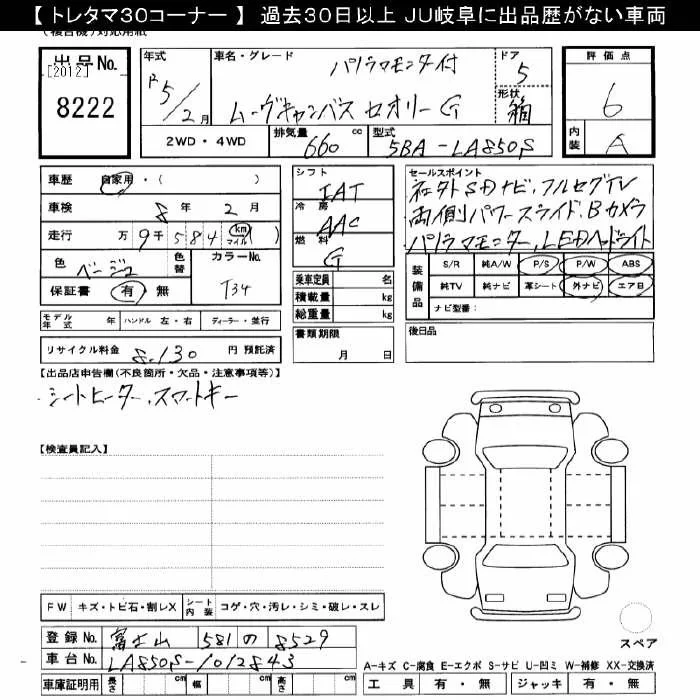 【 トレタマ30コーナー 】 過去30日以上 JU岐阜に出品歴がない車両
出品No. [2012] 8222
年式 R5/2月
車名・グレード パノラマモニター付
ムーヴキャンバス セオリーG
ドア 5
形状 箱
評価点 6
内装 A
2WD・4WD
排気量 660 cc
型式 5BA-LA850S
車歴 自家用・( )
車検 8年 2月
走行 万 9千 5 8 4 (km マイル)
色 ベージュ
色替
カラーNo. T34
保証書 有 無
シフト IAT
冷房 AAC
燃料 G
乗車定員 名
積載量 kg
総重量 kg
セールスポイント
社外SDナビ、フルセグTV
両側パワースライド、Bカメラ
パノラマモニター、LEDヘッドライト
装備品
S/R 純A/W P/S P/W ABS
純TV 純ナビ 革シート 外ナビ エア日
ナビ型番:
モデル年式 年 ハンドル 左・右 ディーラー・並行
書類期限 月 日
後日品
リサイクル料金 8,130 円 預託済
【出品店申告欄(不良箇所・欠品・注意事項等)】
シートヒーター、スマートキー
【検査員記入】
FW キズ・トビ石・割レX
シート内装 コゲ・穴・汚レ・シミ・破レ・スレ
スペア
登録No. 富士山 581 の 8529
車台No. LA850S-1012843
A-キズ C-腐食 E-エクボ S-サビ U-凹ミ W-補修 XX-交換済
車庫証明用 長さ cm 幅 cm 高さ cm
工具 有・無 ジャッキ 有・無